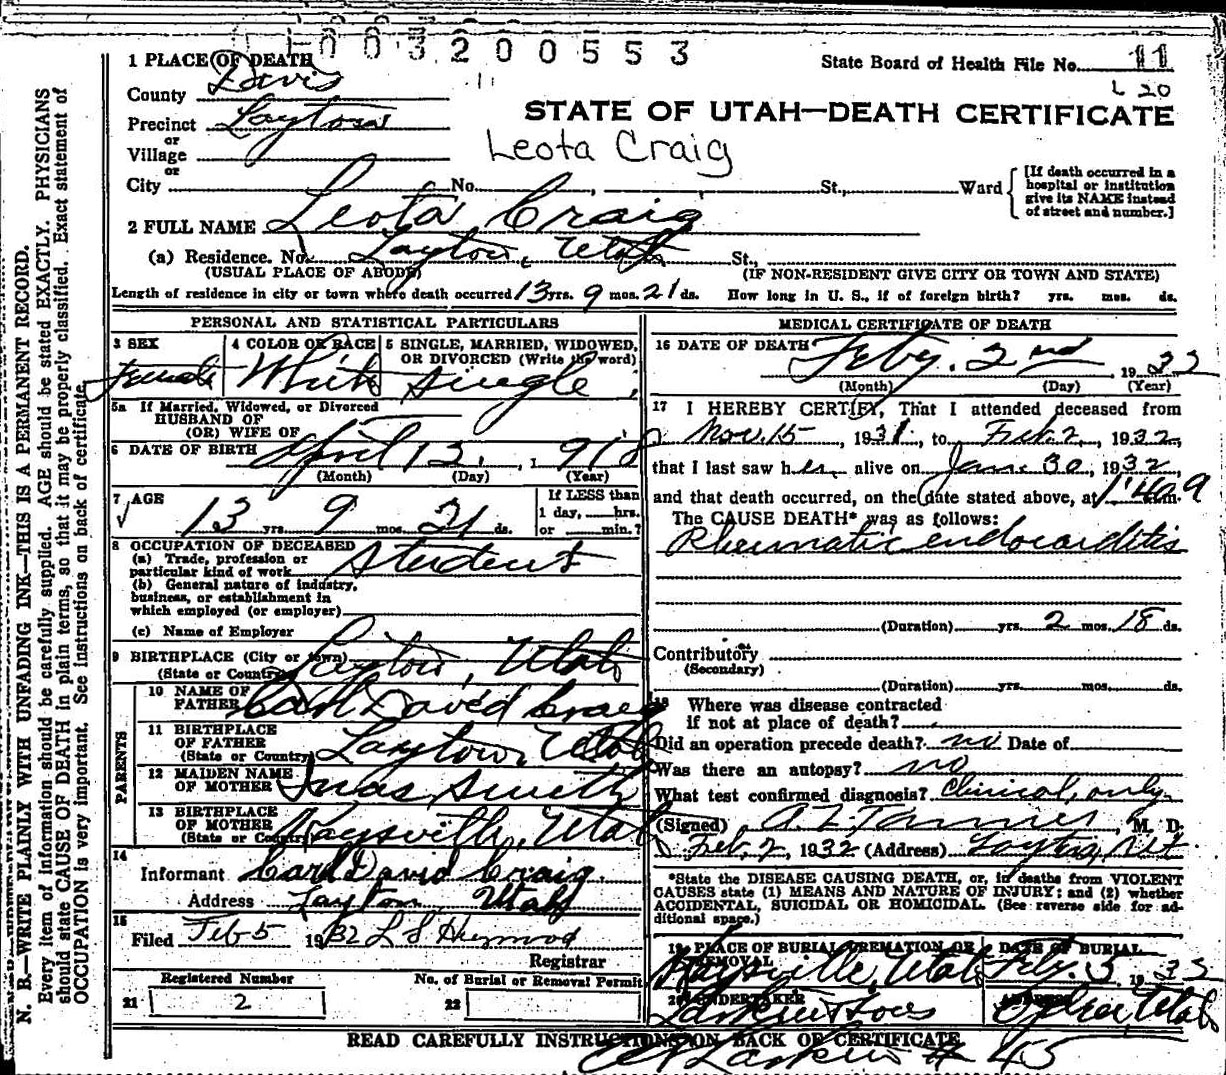 1003200553
1 PLACE OF DEATH
State Board of Health File No. 11
County Davis
L 20
STATE OF UTAH—DEATH CERTIFICATE
Precinct Layton
or
Village
Leota Craig
or
City No. , St., Ward
[If death occurred in a
hospital or institution
give its NAME instead
of street and number.]
2 FULL NAME Leota Craig
(a) Residence. No. Layton, Utah St.,
(USUAL PLACE OF ABODE) (IF NON-RESIDENT GIVE CITY OR TOWN AND STATE)
Length of residence in city or town where death occurred 13 yrs. 9 mos. 21 ds. How long in U. S., if of foreign birth? yrs. mos. ds.
PERSONAL AND STATISTICAL PARTICULARS
3 SEX
Female
4 COLOR OR RACE
White
5 SINGLE, MARRIED, WIDOWED,
OR DIVORCED (Write the word)
single
5a If Married, Widowed, or Divorced
HUSBAND OF
(OR) WIFE OF
6 DATE OF BIRTH April 12, 1918
(Month) (Day) (Year)
7 AGE
13 yrs. 9 mos. 21 ds.
If LESS than
1 day, hrs.
or min.?
8 OCCUPATION OF DECEASED
(a) Trade, profession or
particular kind of work Student
(b) General nature of industry,
business, or establishment in
which employed (or employer)
(c) Name of Employer
9 BIRTHPLACE (City or town)
(State or Country) Layton, Utah
PARENTS
10 NAME OF
FATHER Carl David Craig
11 BIRTHPLACE
OF FATHER
(State or Country) Layton, Utah
12 MAIDEN NAME
OF MOTHER Smith
13 BIRTHPLACE
OF MOTHER
(State or Country) Kaysville, Utah
14
Informant Carl David Craig
Address Layton, Utah
15
Filed Feb 5 1932 L S
Registrar
Registered Number
21 2
No. of Burial or Removal Permit
22
MEDICAL CERTIFICATE OF DEATH
16 DATE OF DEATH
Feby. 2nd 1932
(Month) (Day) (Year)
17 I HEREBY CERTIFY, That I attended deceased from
Nov. 15, 1931, to Feb. 2, 1932,
that I last saw her alive on Jan. 30, 1932,
and that death occurred, on the date stated above, at m.
The CAUSE DEATH* was as follows:
Rheumatic endocarditis
(Duration) yrs. 2 mos. 18 ds.
Contributory
(Secondary)
(Duration) yrs. mos. ds.
18 Where was disease contracted
if not at place of death?
Did an operation precede death? no Date of
Was there an autopsy? no
What test confirmed diagnosis? Clinical, only
(Signed) A. Z. Tanner, M. D.
Feb. 2, 1932 (Address) Layton, Ut
*State the DISEASE CAUSING DEATH, or, in deaths from VIOLENT
CAUSES state (1) MEANS AND NATURE OF INJURY; and (2) whether
ACCIDENTAL, SUICIDAL OR HOMICIDAL. (See reverse side for ad-
ditional space.)
19 PLACE OF BURIAL, CREMATION OR
REMOVAL
Kaysville, Utah
DATE OF BURIAL
Feby. 5 1932
20 UNDERTAKER
Larkin & Sons
ADDRESS
Ogden, Utah
READ CAREFULLY INSTRUCTIONS ON BACK OF CERTIFICATE
Larkin # 45
N. B.—WRITE PLAINLY WITH UNFADING INK—THIS IS A PERMANENT RECORD.
Every item of information should be carefully supplied. AGE should be stated EXACTLY. PHYSICIANS
should state CAUSE OF DEATH in plain terms, so that it may be properly classified. Exact statement of
OCCUPATION is very important. See instructions on back of certificate.